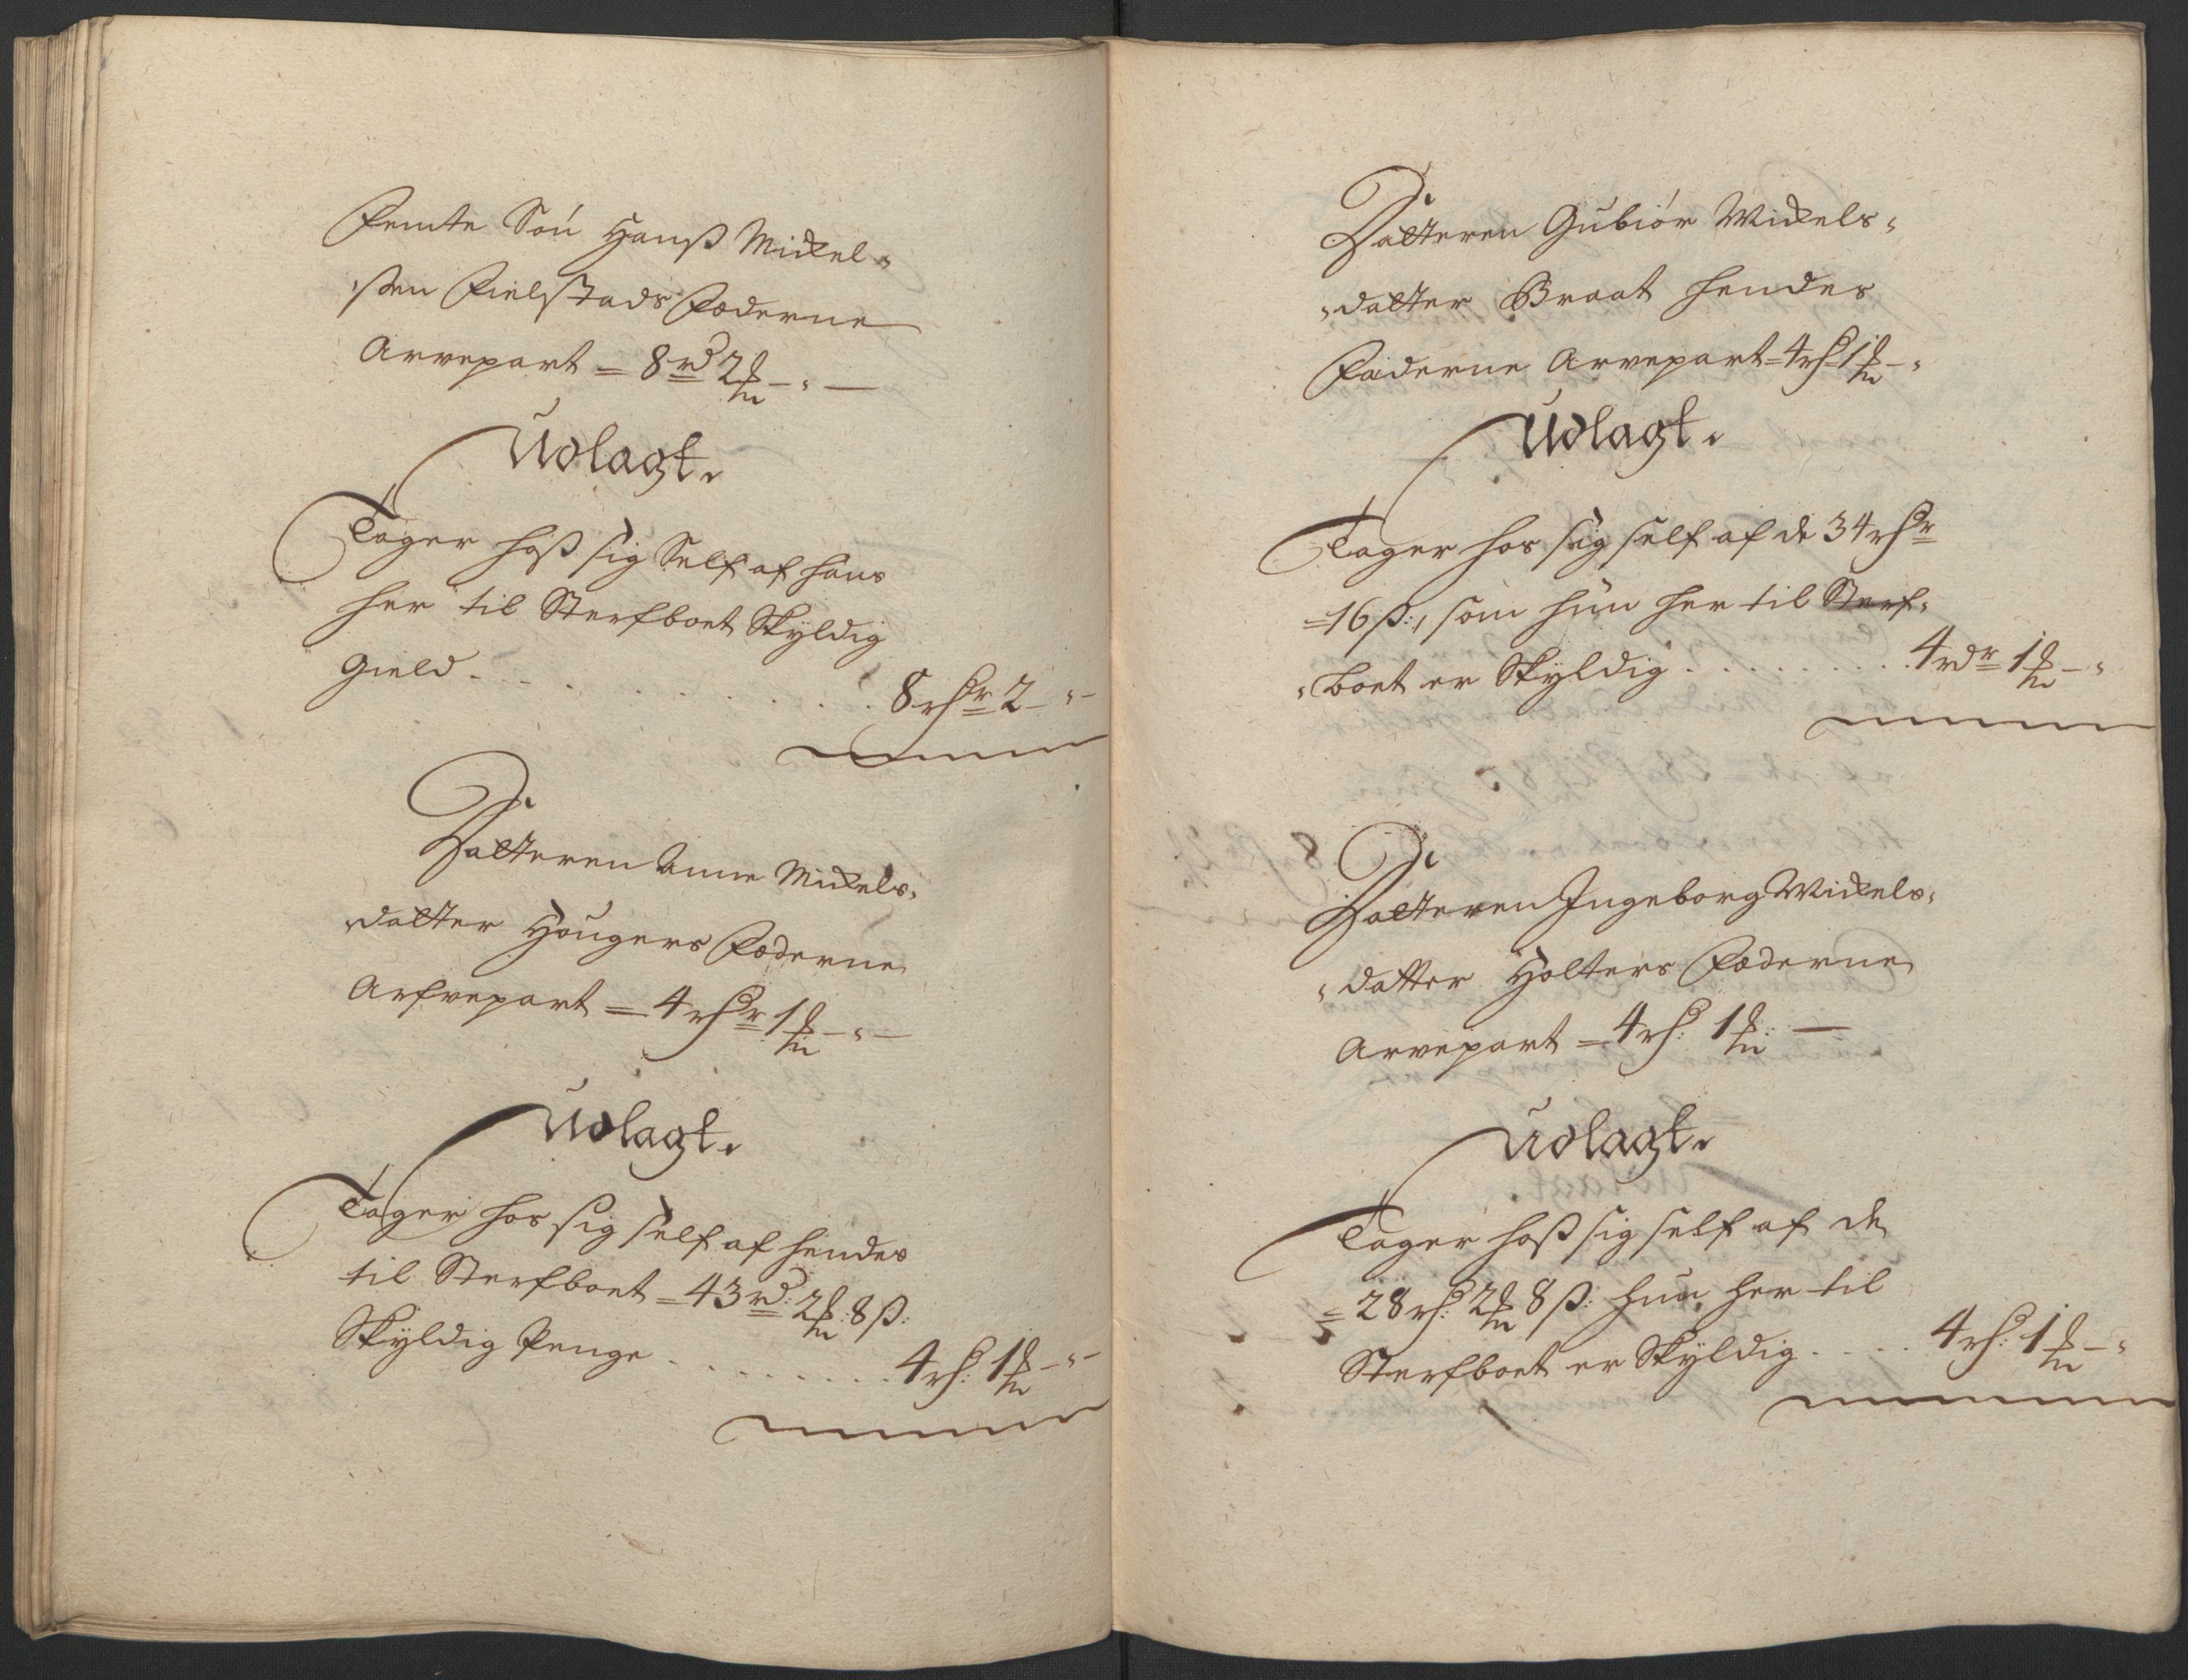 Femte Søn Hanß Mickel-
sen Fielstads Fæderne
Arvepart = 8 rd 2 ℔ - " -
Udlagt.
Tager hoß sig Self af hans
her til Sterfboet Skÿldig
Gield . . . . . . . . 8 rdr 2 - " -
Datteren Anne Mickels-
datter Hougers Fæderne
Arfvepart = 4 rdr 1 ℔ - " -
Udlagt.
Tager hos sig self af hendes
til Sterfboet = 43 rd: 2 ℔: 8 ß:
Skÿldig Penge . . . . . . . 4 rd: 1 ℔ - " -
Datteren Gubiør Mickels-
datter Braat hendes
Fæderne Arvepart = 4 rd 1 ℔ - "
Udlagt.
Tager hos sig self af de 34 rdr
= 16 ß:, som hun her til Sterf-
boet er Skÿldig . . . . . . . . 4 rdr 1 ℔ - "
Datteren Ingeborg Mickels-
datter Holters Fæderne
Arvepart = 4 rd: 1 ℔: -
Udlagt.
Tager hoß sig self af de
= 28 rd: 2 ℔ 8 ß: hun her til
Sterfboet er Skÿldig . . . . 4 rd: 1 ℔ - "